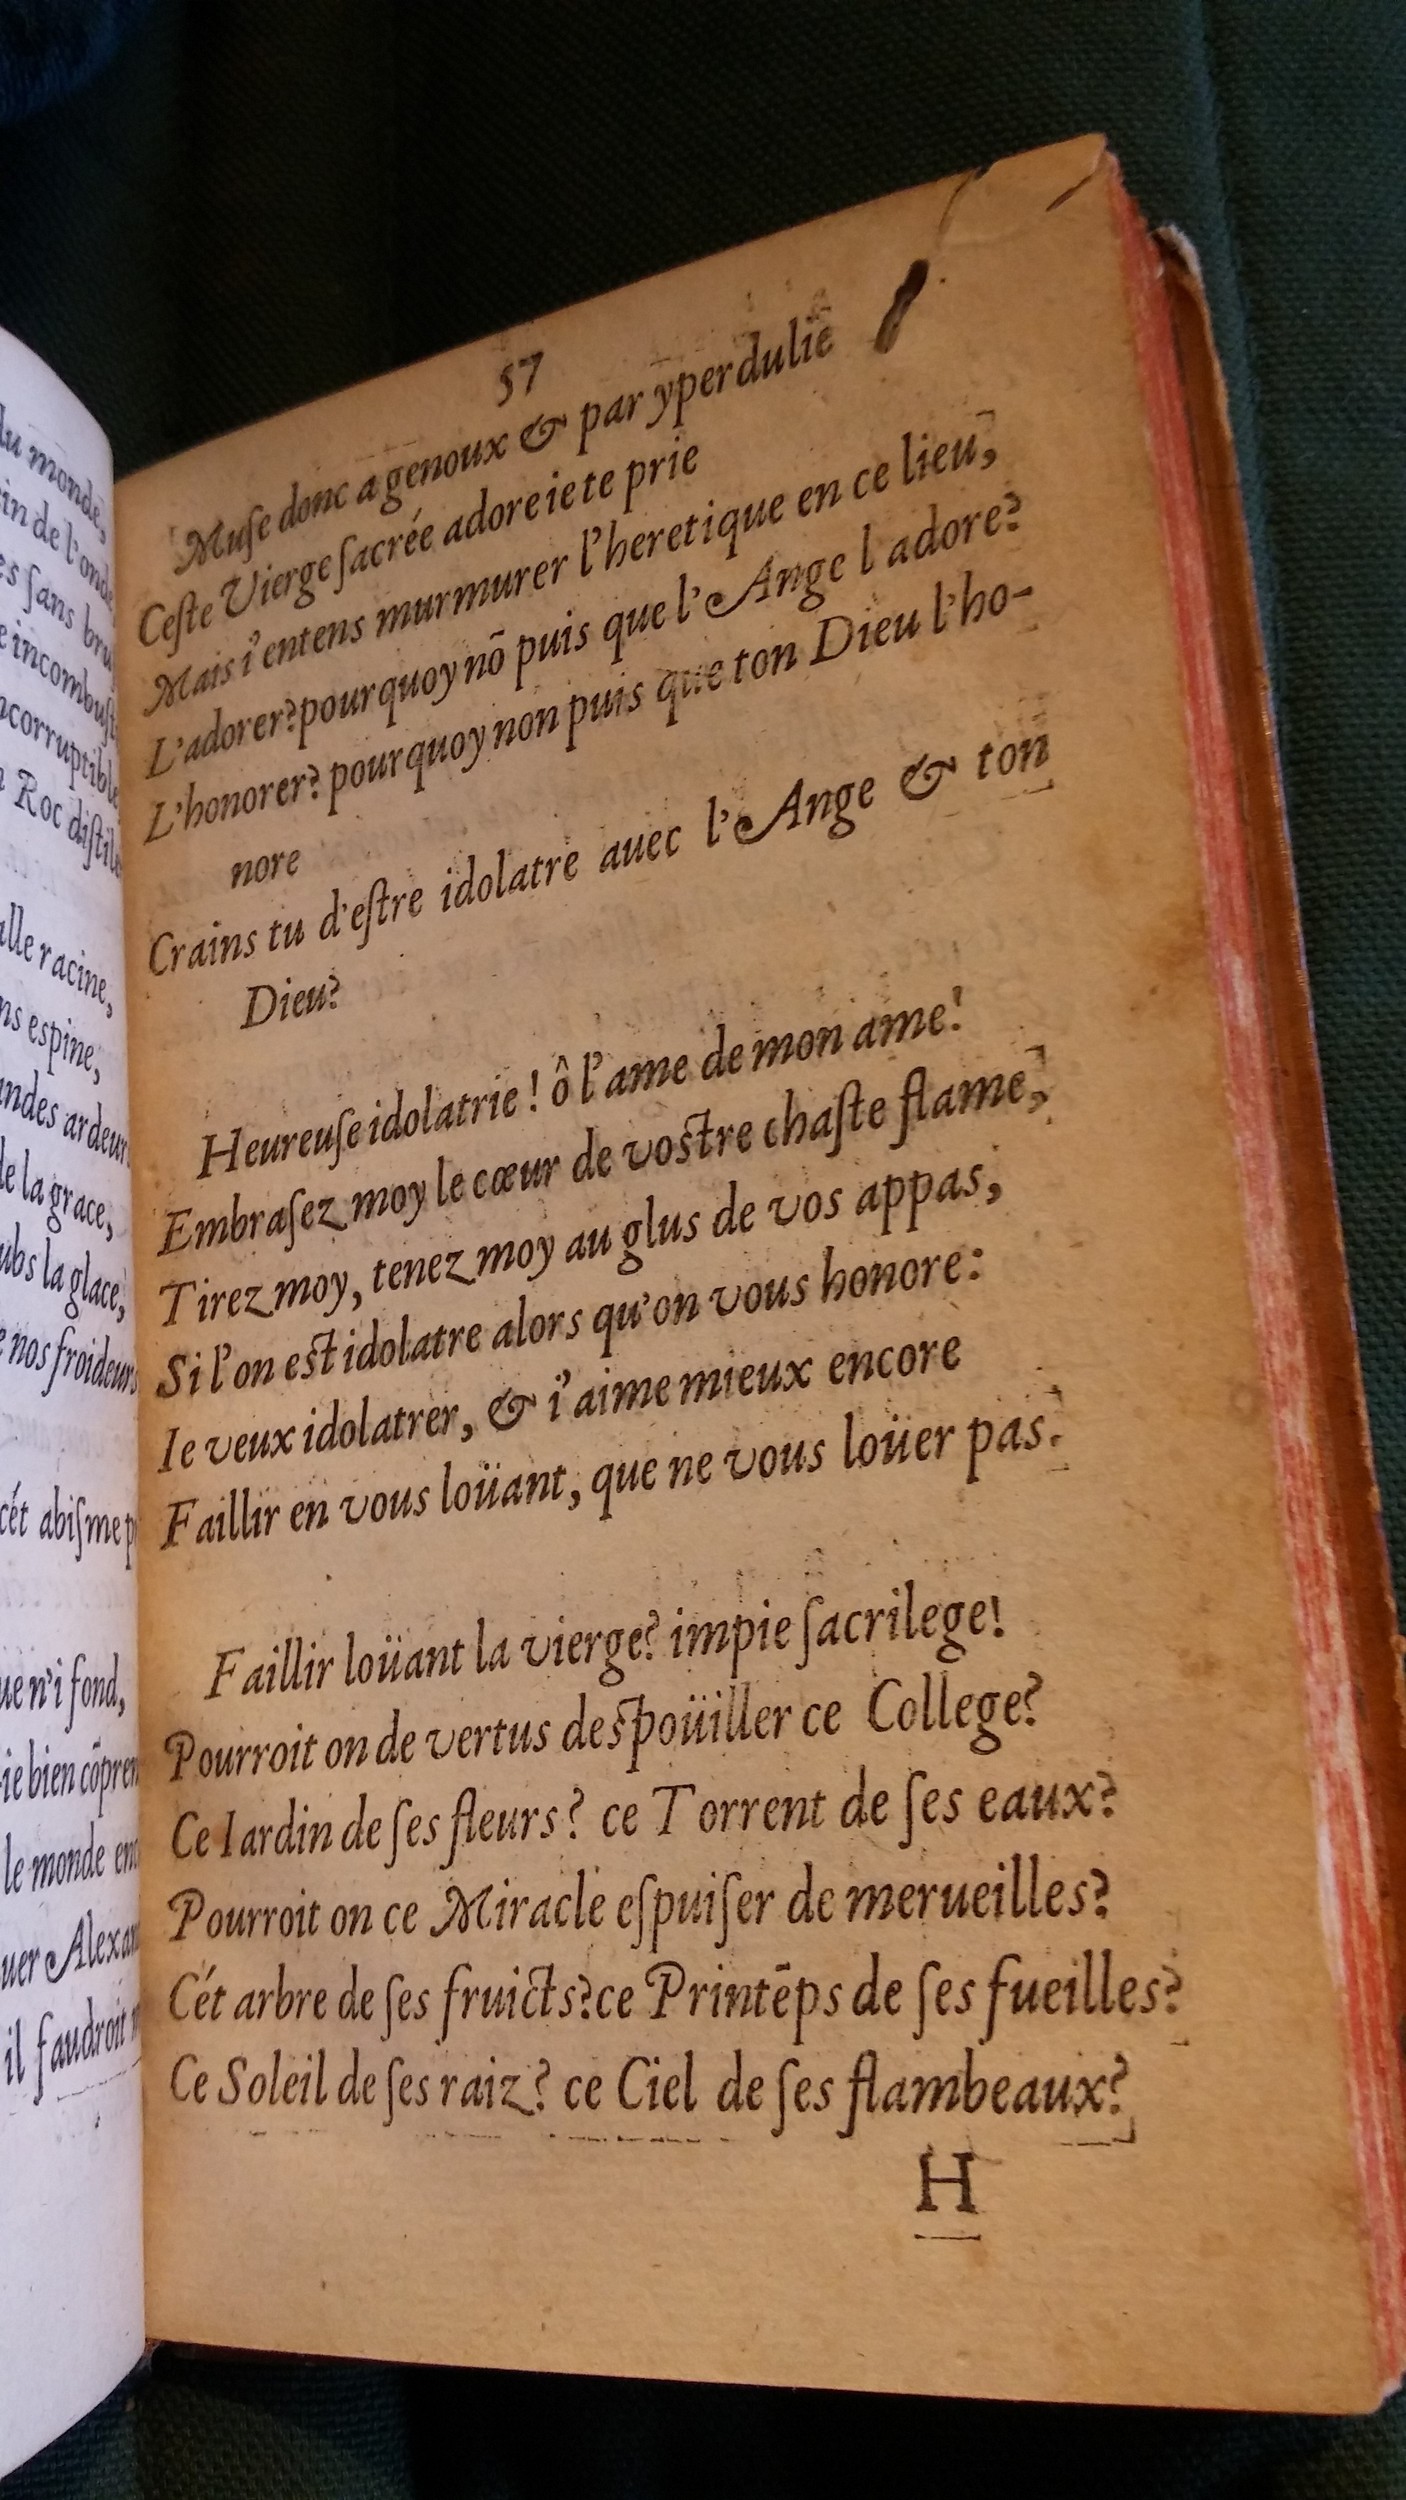 du monde,
de l'onde
sans
incombust
corruptible
Roc distile
racine,
espine,
ardeur
de la grace,
la glace,
nos froideurs
cét abisme
n'i fond,
ie bien cõpren
le monde
Alexan
il faudroit
57
Muſe donc a genoux & par yperdulie
Ceſte Vierge ſacrée adore ie te prie
Mais i'entens murmurer l'heretique en ce lieu,
L'adorer? pourquoy nõ puis que l'Ange l adore?
L'honorer? pourquoy non puis que ton Dieu l'ho-
nore
Crains tu d'eſtre idolatre auec l'Ange & ton
Dieu?
Heureuſe idolatrie! ô l'ame de mon ame!
Embraſez moy le cœur de vostre chaſte flame,
Tirez moy, tenez moy au glus de vos appas,
Si l'on est idolatre alors qu'on vous honore:
Ie veux idolatrer, & i'aime mieux encore
Faillir en vous loüant, que ne vous loüer pas.
Faillir loüant la vierge? impie ſacrilege!
Pourroit on de vertus despoüiller ce College?
Ce Iardin de ſes fleurs? ce Torrent de ſes eaux?
Pourroit on ce Miracle eſpuiſer de merueilles?
Cét arbre de ſes fruicts? ce Printẽps de ſes fueilles?
Ce Soleil de ſes raiz? ce Ciel de ſes flambeaux?
H